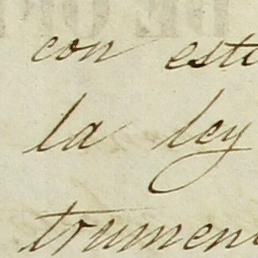 con este
la ley
trument